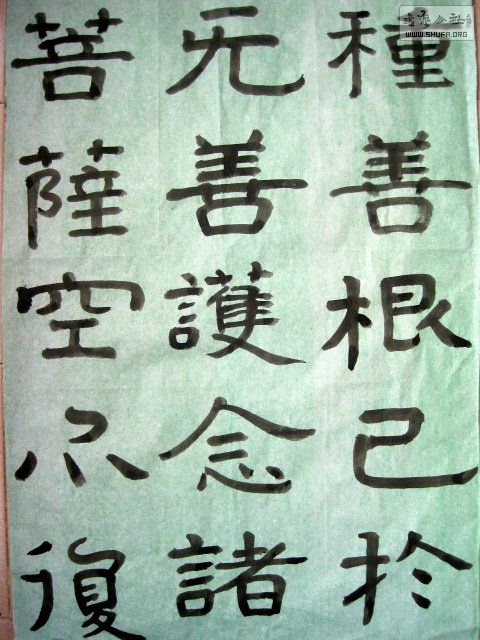 種善根已於
无善護念諸
菩薩空尒復
WWW.SHUFA.ORG